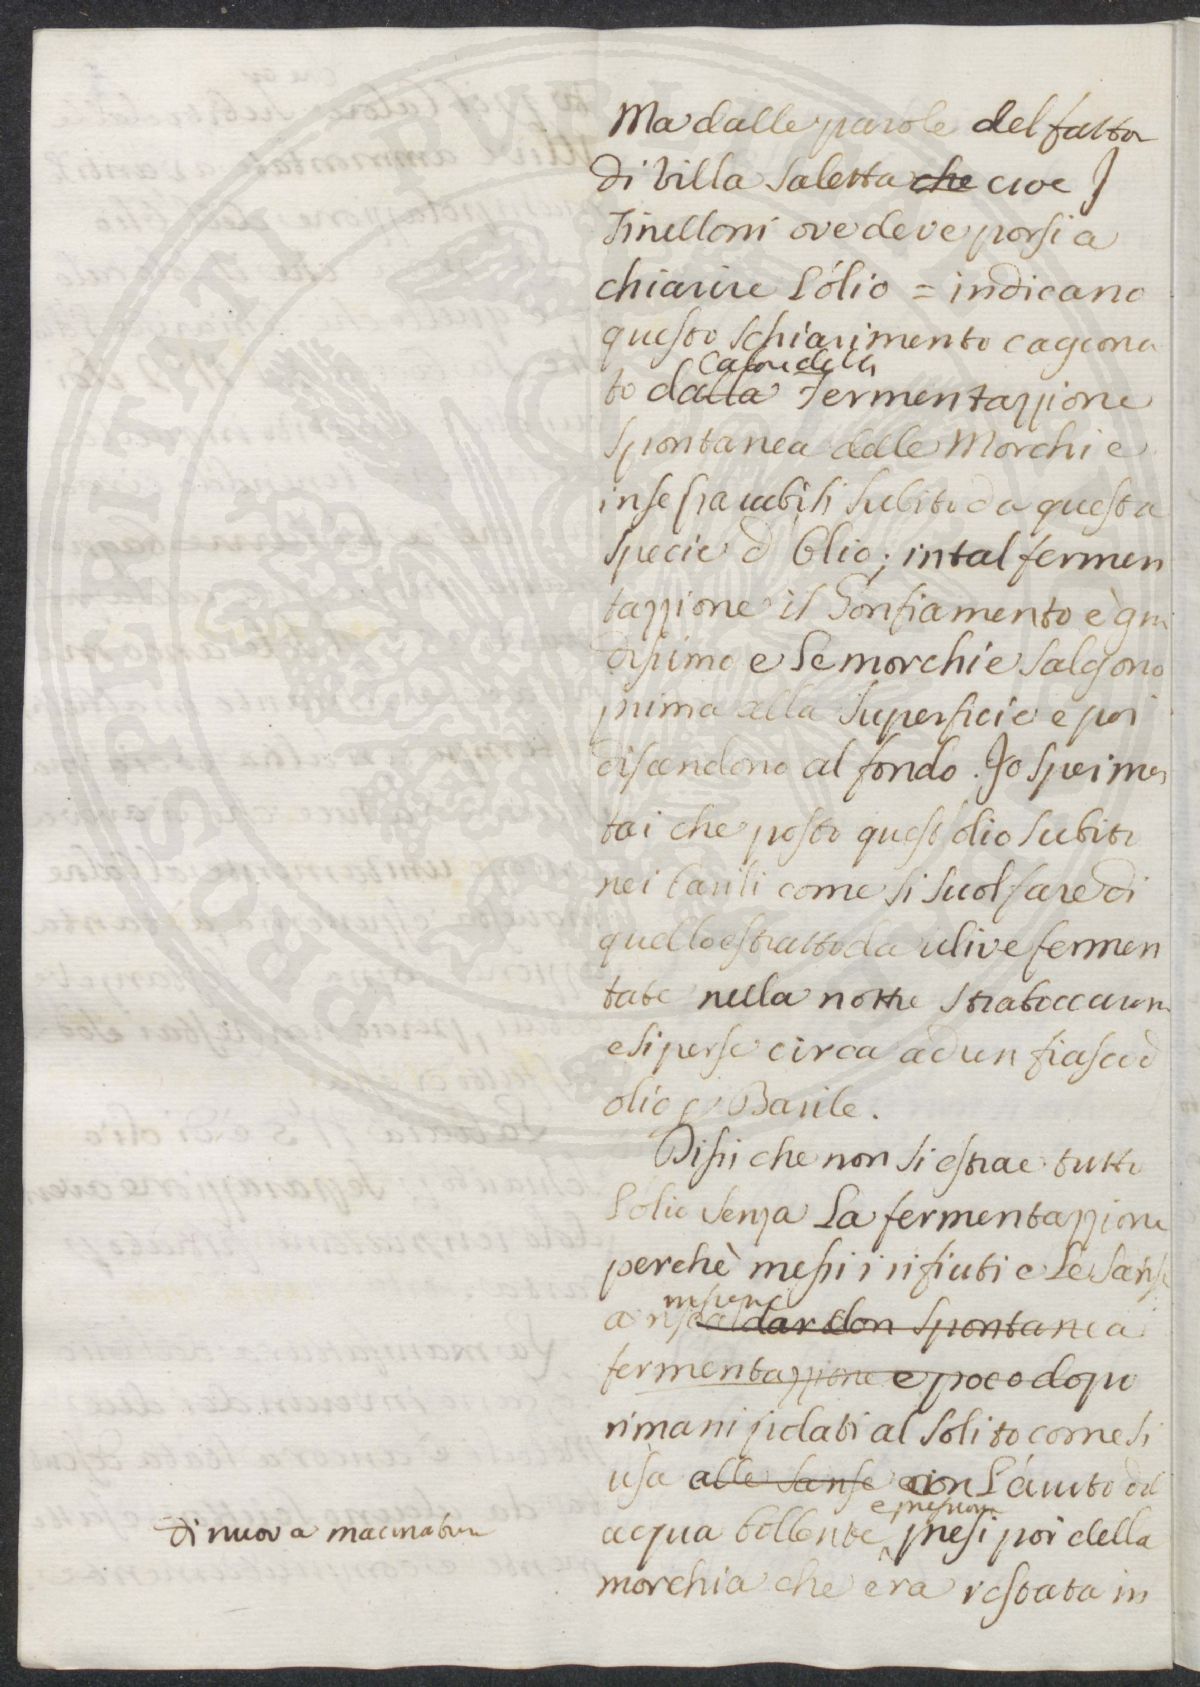 Ma dalle parole del fatto
di Villa Saletta che cioe J
Tinelloni ove deve porsi a
chiarire L'ólio = indicano
questo schiarimento cagiona
Calore della
to dalla Fermentazzione
spontanea delle Morchie
inseparabili subito da questa
specie d'Olio; in tal fermen
tazzione il Gonfiamento è gran
disimo e Le morchie salgono
prima alla superficie e poi
discendono al fondo. Jo sperimen
tai che posto quest'olio subito
nei barili come si suol fare di
quello estratto da ulive fermen
tate nella notte straboccarono
e si perse circa ad un fiasco d
olio p Barile.
Dissi che non si estrae tutto
L'olio senza La fermentazzione
perchè messi i rifiuti e Le Sanse
a riscaldar con spontanea
fermentazzione e poco dopo
rimanipolati al solito come si
usa alle sanse con L'áiuto del
acqua bollente presi poi della
di nuova macinatura
morchia che era restata in
PROSPERITATI PVBLICAE